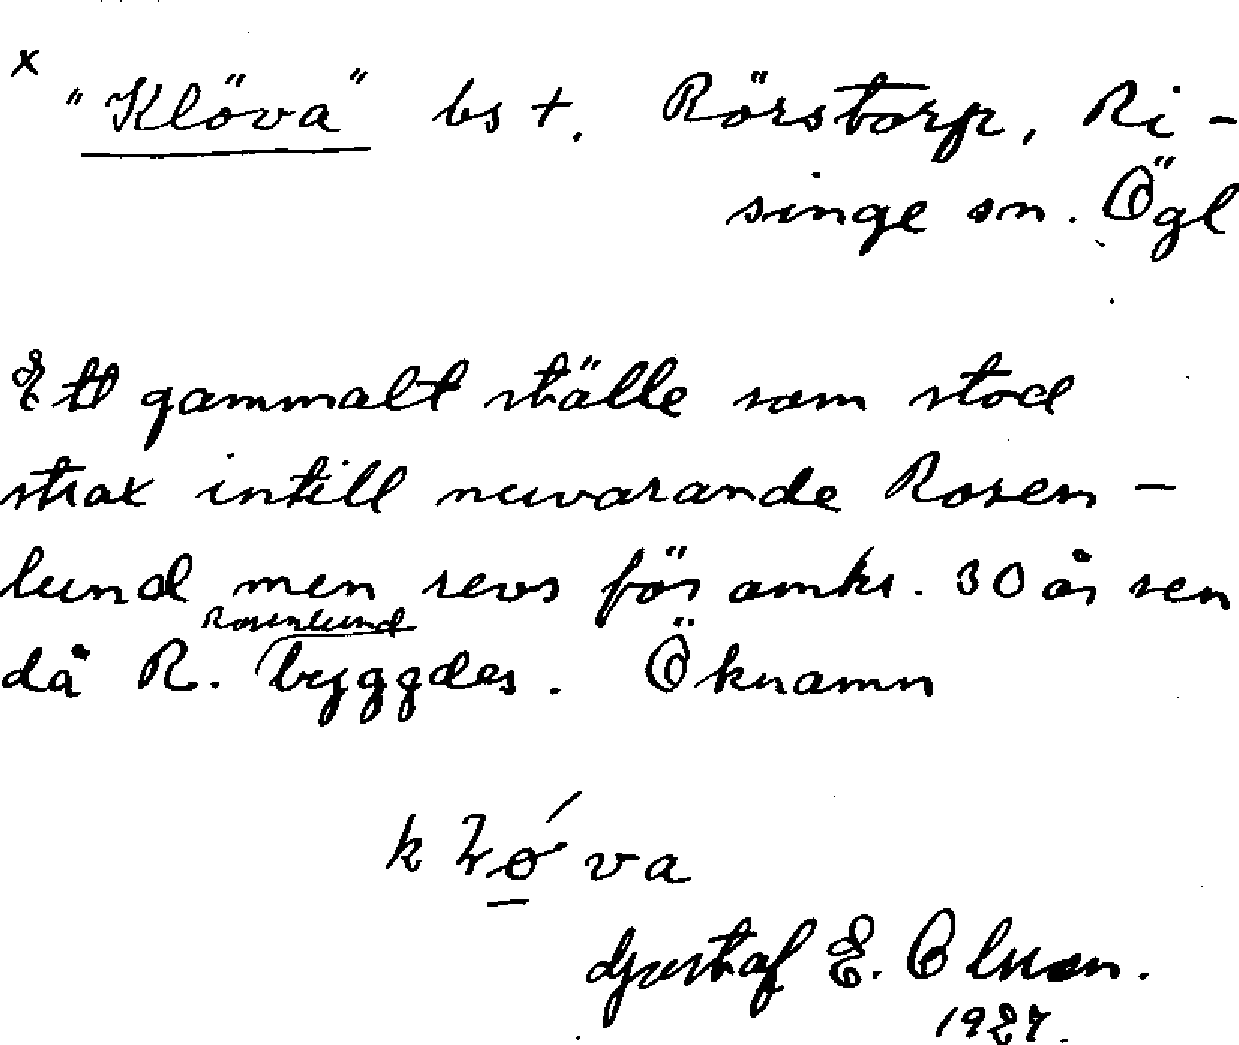 x
"Klöva" bs +. Rörstorp, Ri-
singe sn. Ögl
Ett gammalt ställe som stod
strax intill nuvarande Rosen-
lund men revs för omkr. 30 år sen
Rosenlund
då R. byggdes. Öknamn
va
Gustaf E. Olsson.
1927.